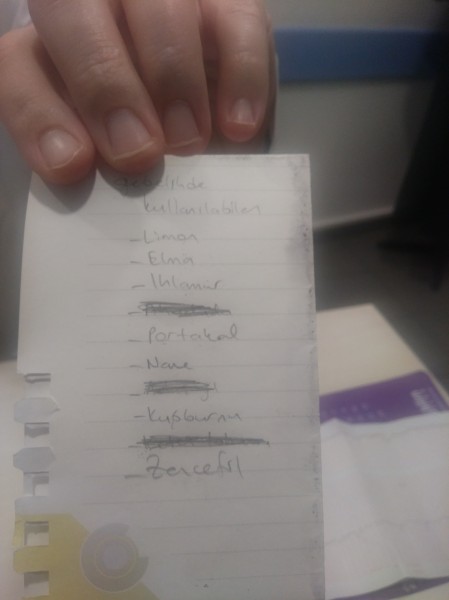 Gebelikde
kullanılabilen
- Limon
- Elma
- Ihlamur
- Portakal
- Nane
- Kuşburnu
- Zencefil